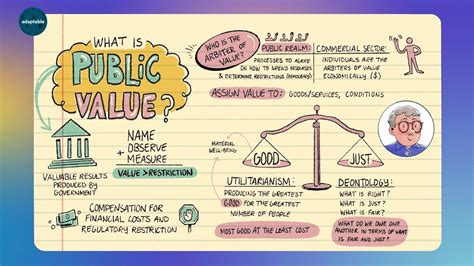 adaptable
WHAT IS
PUBLIC
VALUE?
WHO IS THE
ARBITER OF
VALUE?
PUBLIC REALM:
PROCESSES TO AGREE
ON HOW TO SPEND RESOURCES
& DETERMINE RESTRICTIONS (DEMOCRACY)
COMMERCIAL SECTOR:
INDIVIDUALS ARE THE
ARBITERS OF VALUE
ECONOMICALLY ($)
ASSIGN VALUE TO: GOODS/SERVICES, CONDITIONS
VALUABLE RESULTS
PRODUCED BY
GOVERNMENT
NAME
OBSERVE
MEASURE
VALUE > RESTRICTION
COMPENSATION FOR
FINANCIAL COSTS AND
REGULATORY RESTRICTION
MATERIAL
WELL-BEING
GOOD
JUST
UTILITARIANISM:
PRODUCING THE GREATEST
GOOD FOR THE GREATEST
NUMBER OF PEOPLE
MOST GOOD AT THE LEAST COST
DEONTOLOGY:
WHAT IS RIGHT?
WHAT IS JUST?
WHAT IS FAIR?
WHAT DO WE OWE ONE
ANOTHER IN TERMS OF WHAT
IS FAIR AND JUST?